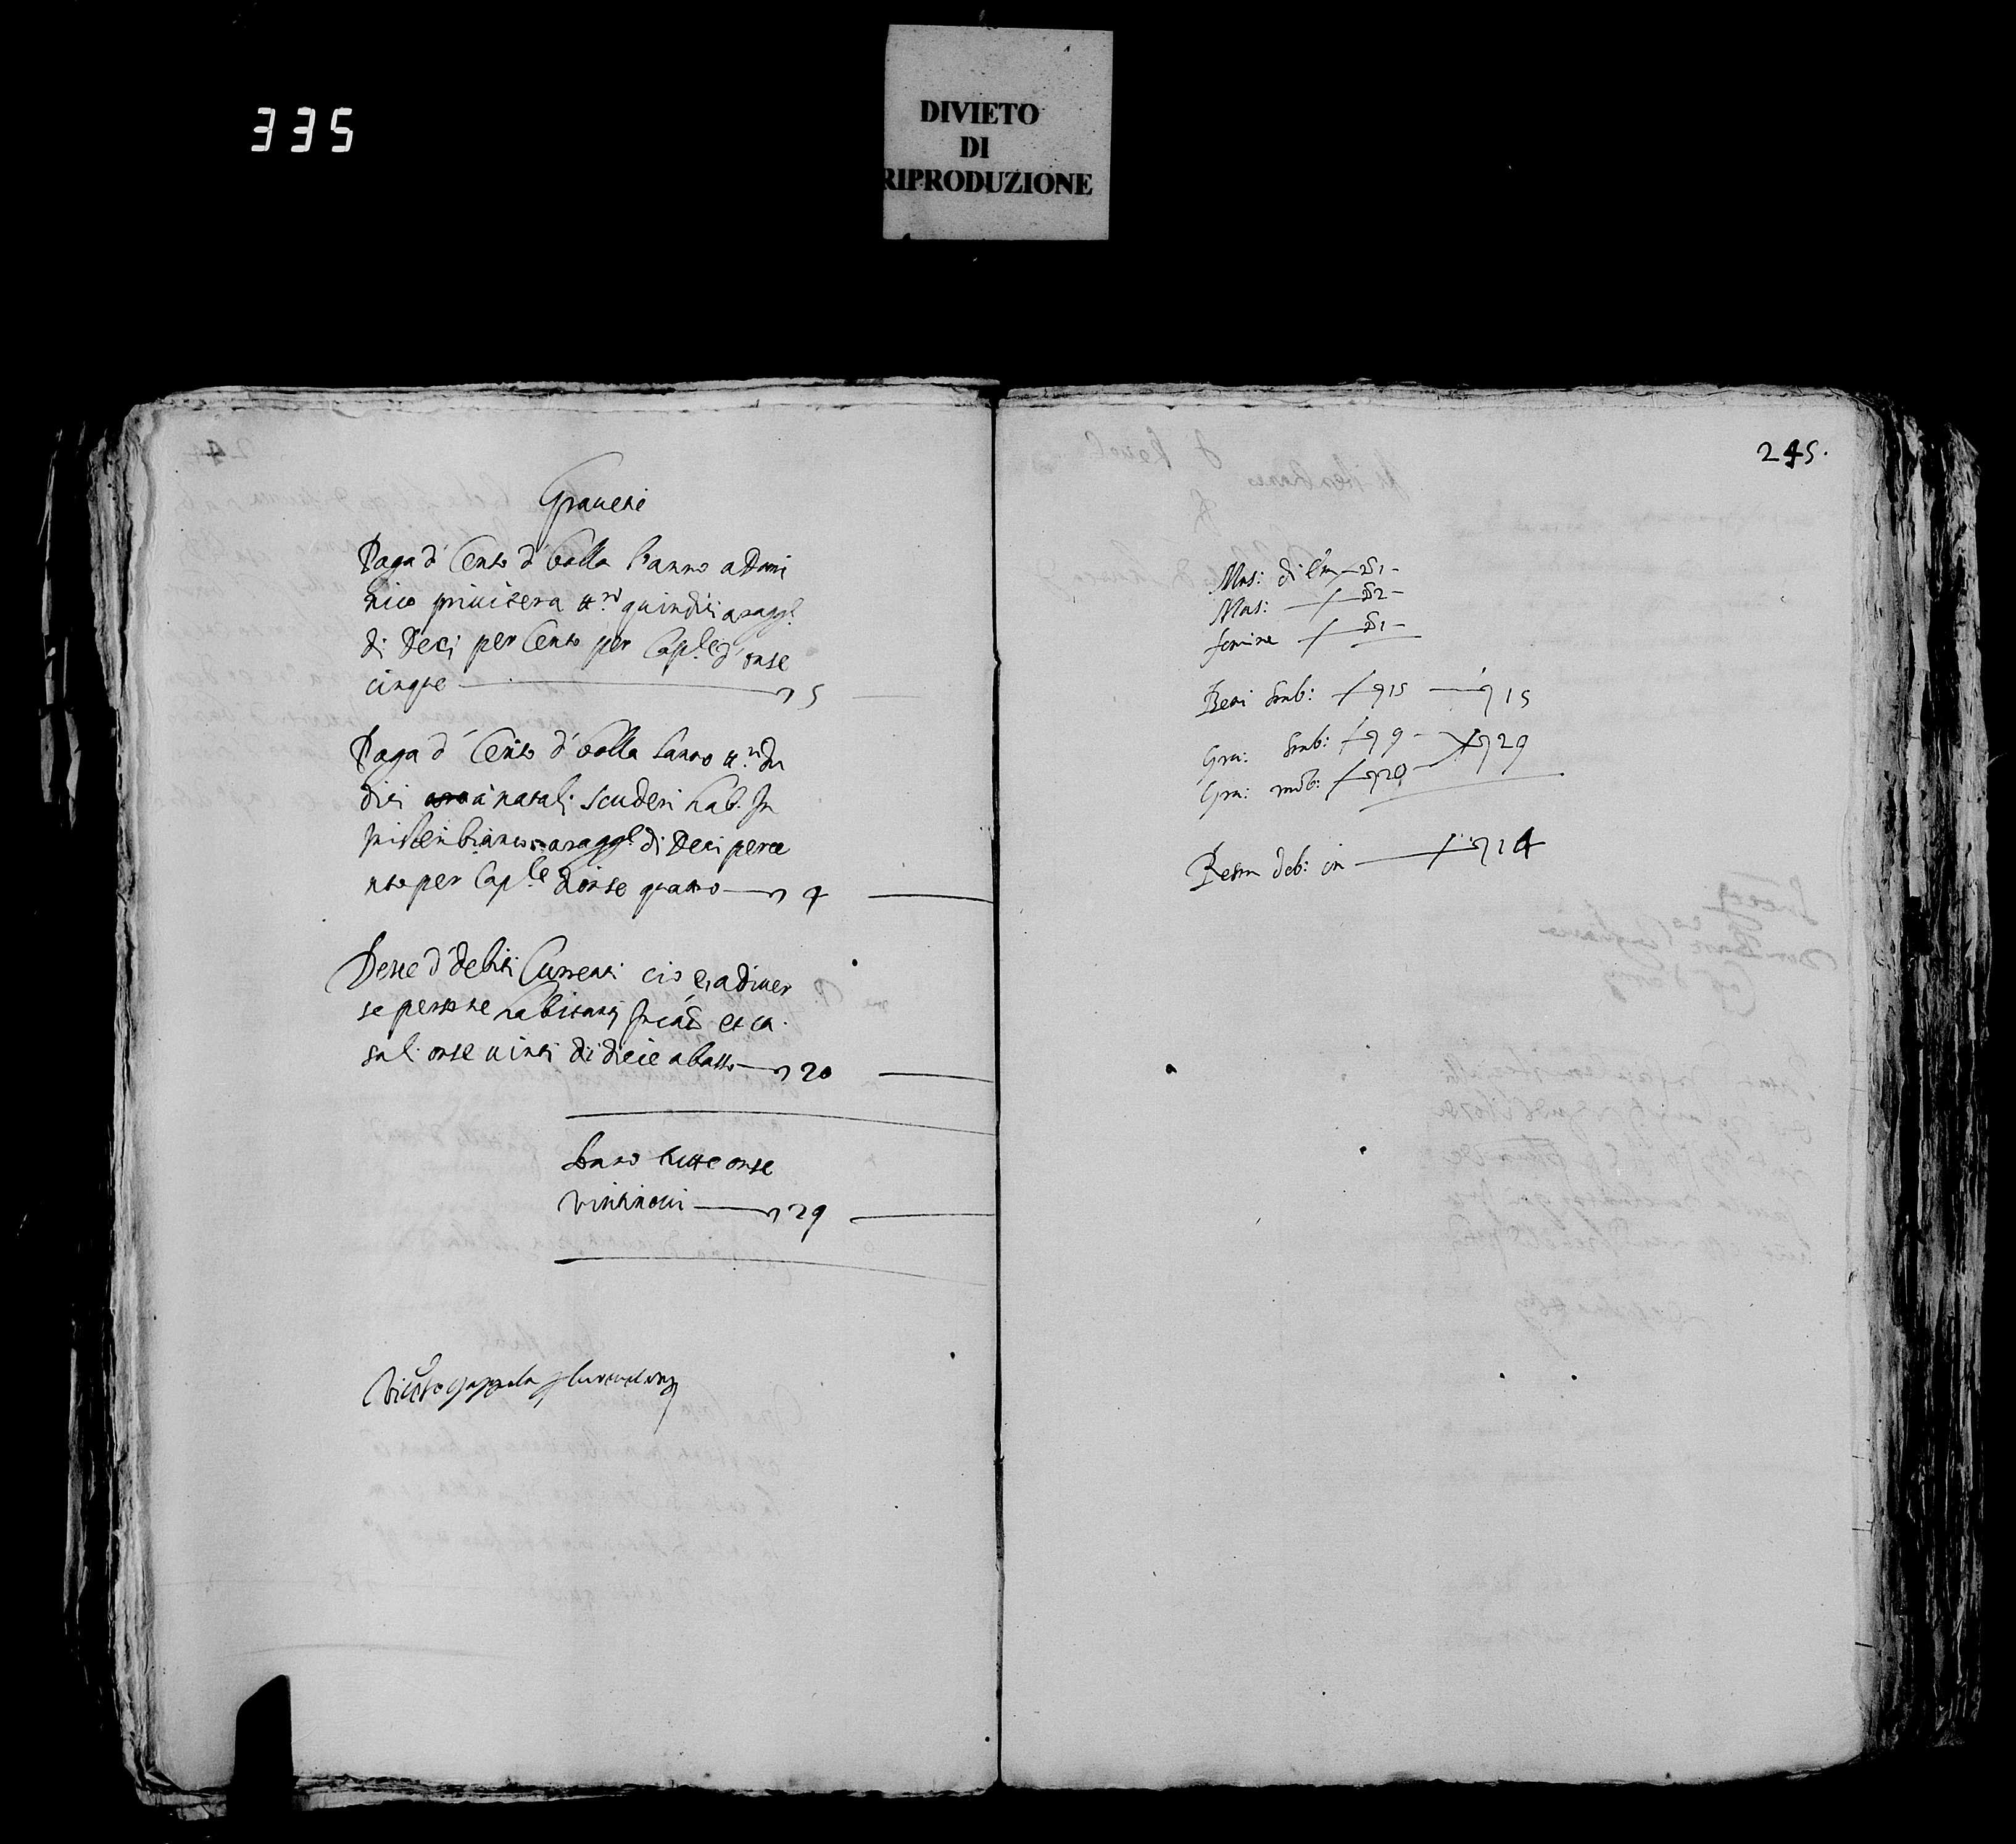 335
DIVIETO
DI
RIPRODUZIONE
Gravezi
Paga d Censo d bolla l'anno a Domi
nico privitera quindici a ragg.
di Deci per Cento per Cap.le d'onse
cinque 5
Paga d' Censo d' bolla l'anno
dici à natali scuderi hab. In
bianco a ragg. di Deci perce
nto per Cap.le d'onse quatro 4
Deve d' debiti Currenti cio e, a diver
se persone habitanti et ca
sal. onse vinti di diece abasso 20
Sono tutte onse
vintinovi 29
245.
Mas: di 1-
Mas: 2-
femine 1-
Beni stab: 15 15
Gra: stab: 9 29
Gra: mob: 20
Resta deb: in 14